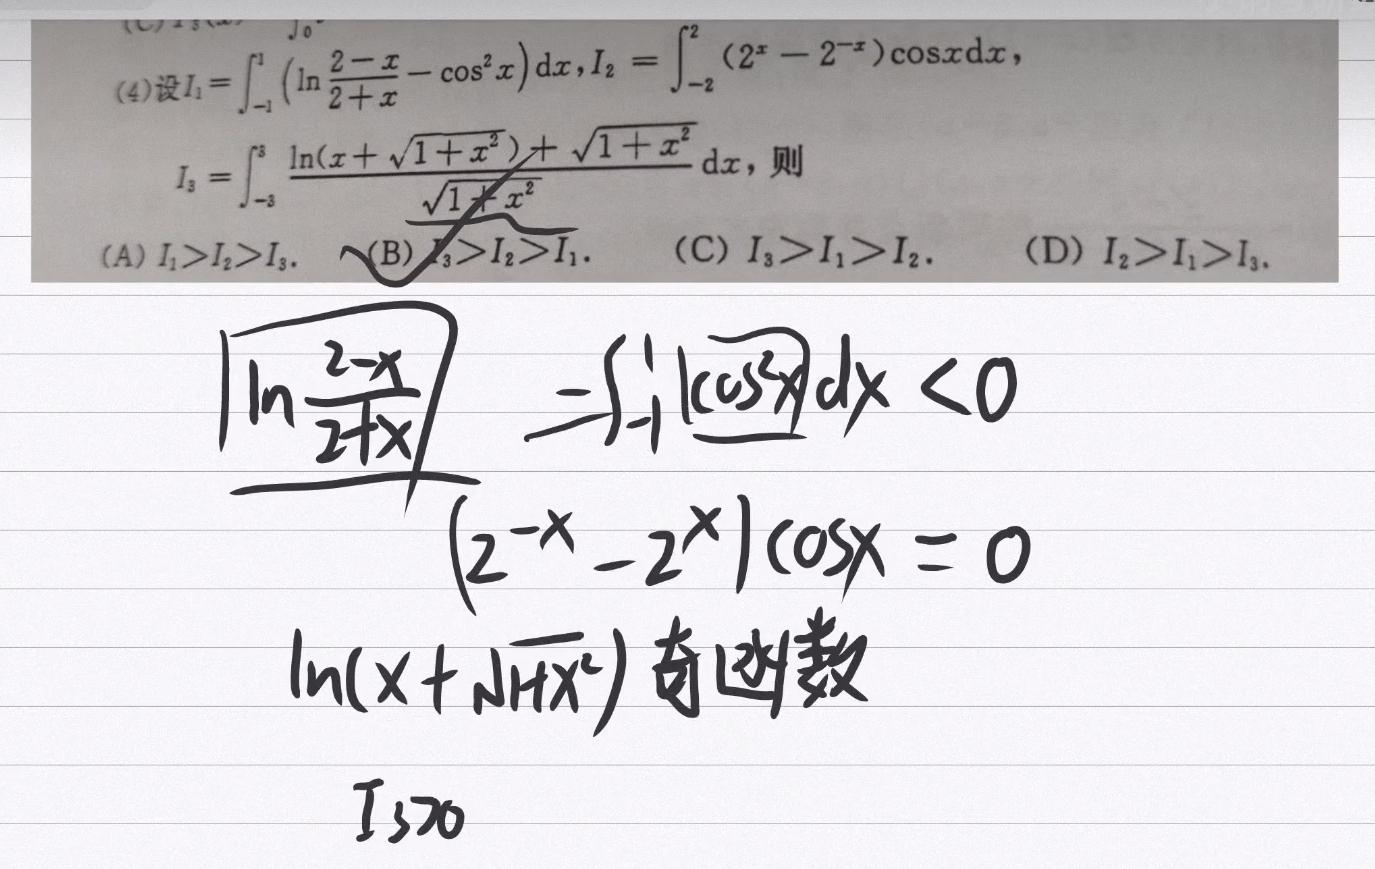 (4)设I₁=∫₋₁¹(ln (2-x)/(2+x) - cos²x)dx, I₂=∫₋₂²(2ˣ-2⁻ˣ)cosxdx,
I₃=∫₋₃³ (ln(x+√(1+x²))+√(1+x²))/√(1+x²) dx, 则
(A) I₁>I₂>I₃. (B) I₃>I₂>I₁. (C) I₃>I₁>I₂. (D) I₂>I₁>I₃.
ln (2-x)/(2+x) =∫₋₁¹ (cos²x)dx <0
(2⁻ˣ-2ˣ)cosx=0
ln(x+√(1+x²)) 奇函数
I₃>0